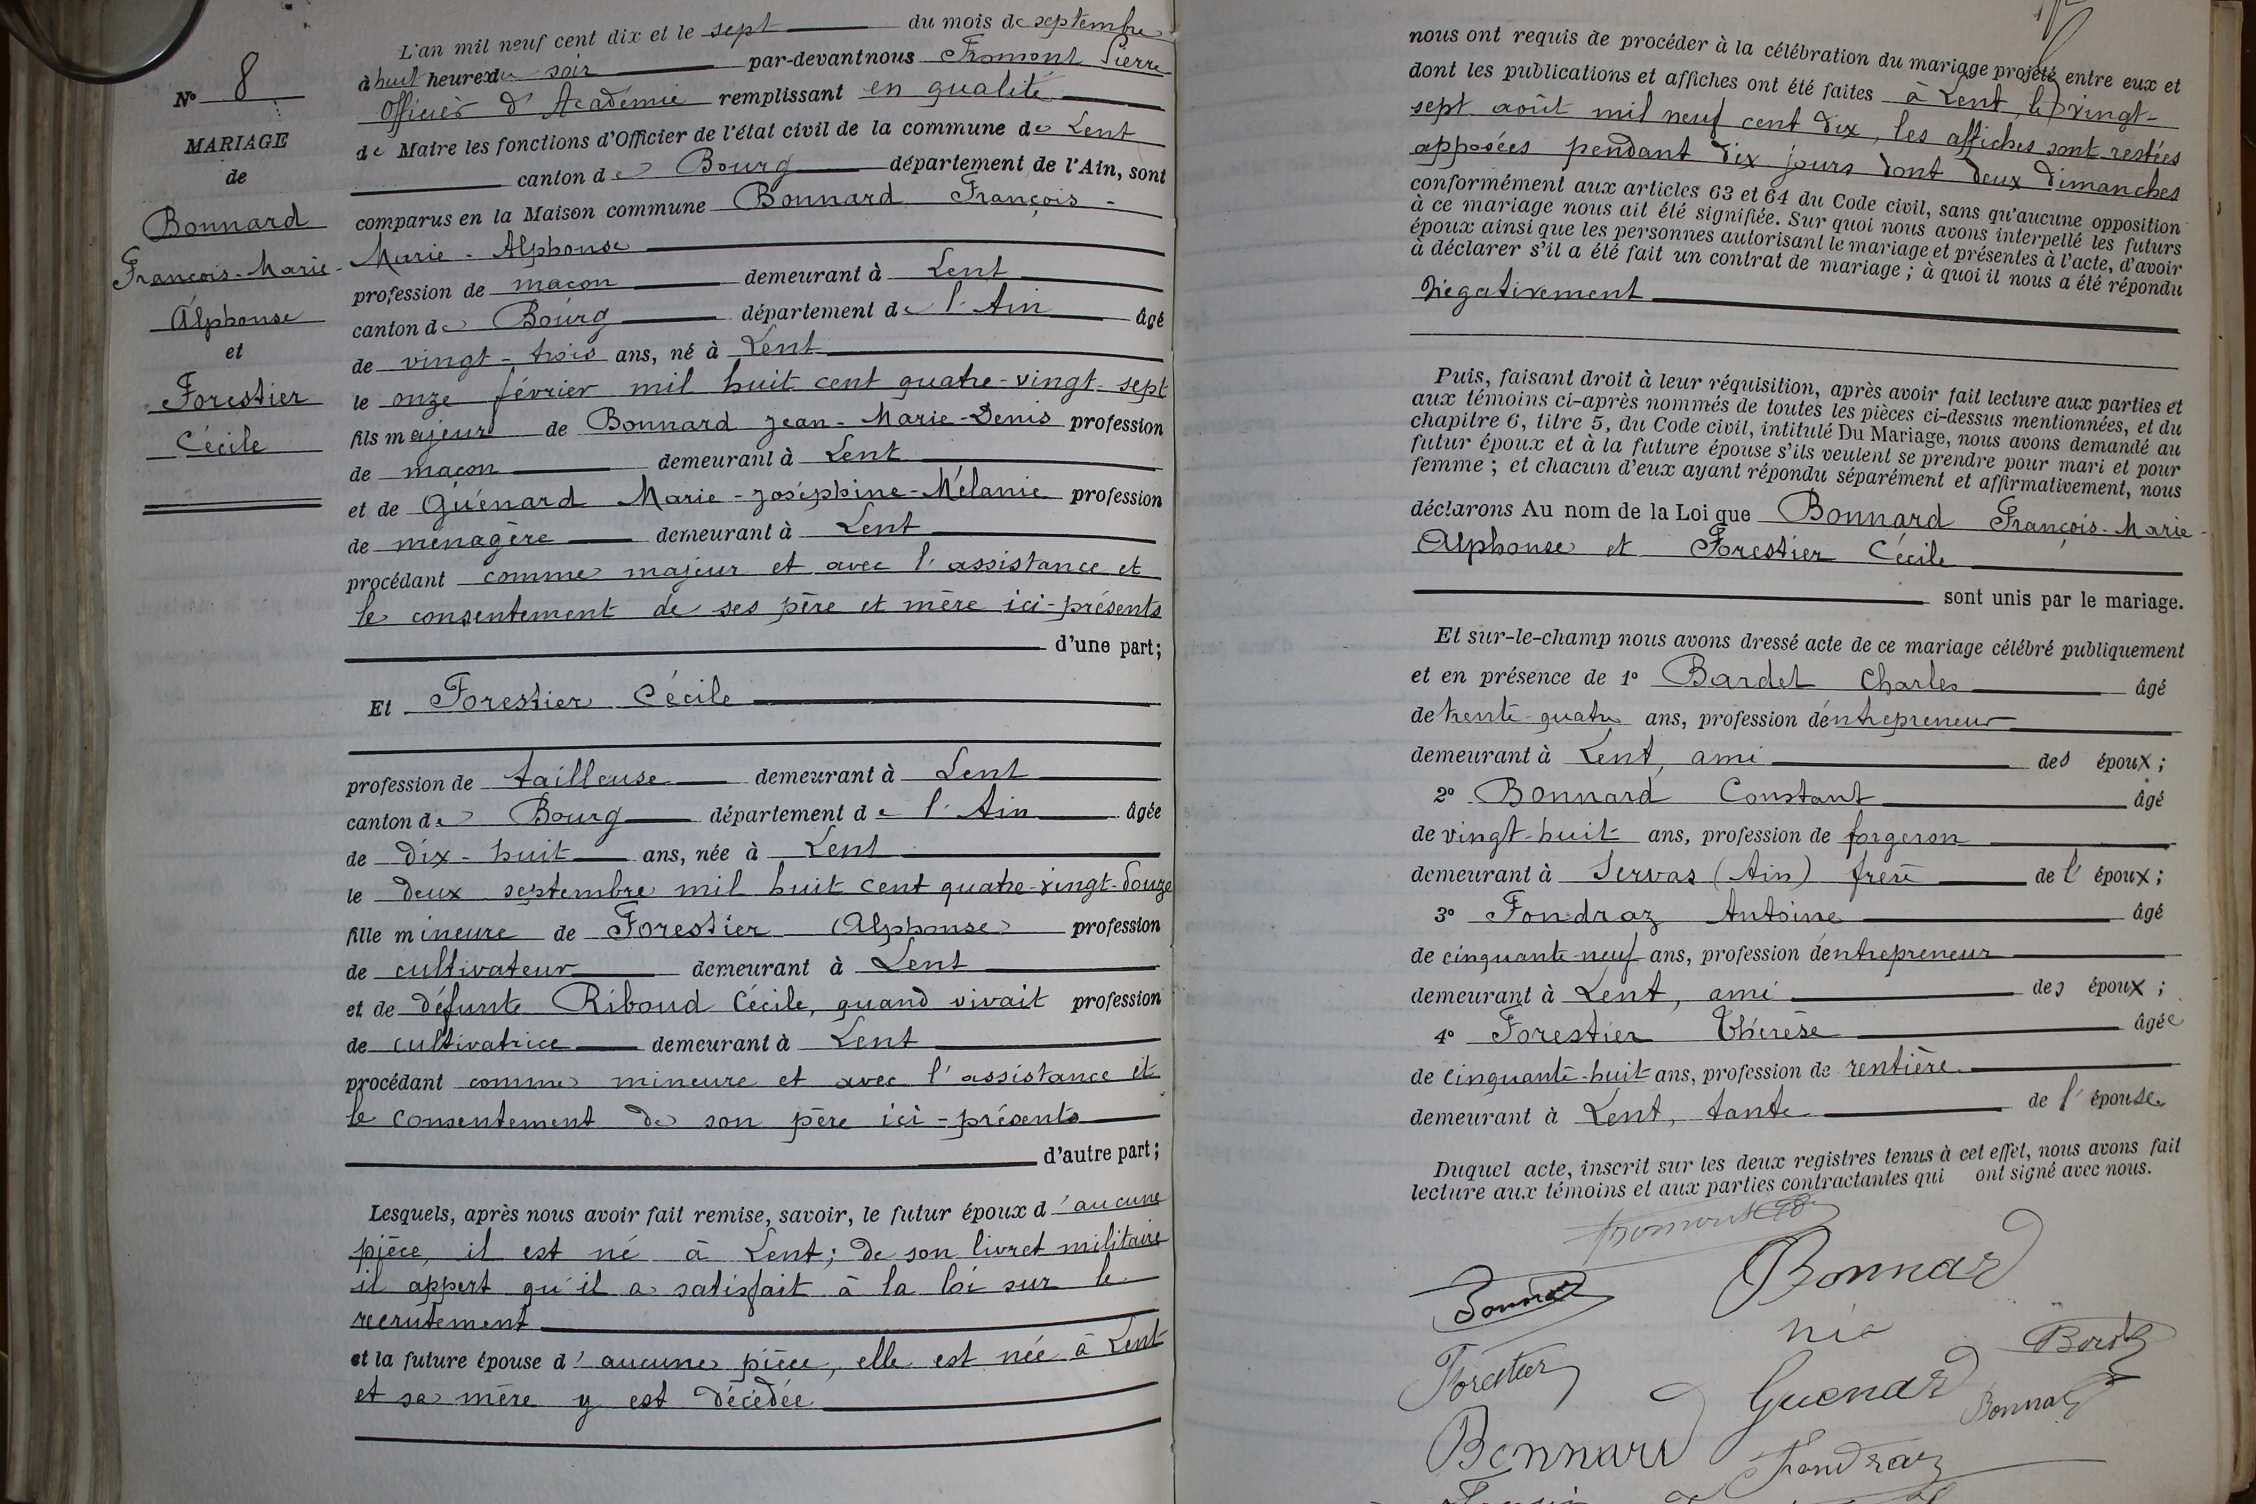 N° 8
MARIAGE
de
Bonnard
François-Marie-
Alphonse
et
Forestier
Cécile
L'an mil neuf cent dix et le sept du mois de septembre
à huit heures du soir par-devant nous Fromont Pierre
Officier d'Académie remplissant en qualité
de Maire les fonctions d'Officier de l'état civil de la commune de Lent
canton de Bourg département de l'Ain, sont
comparus en la Maison commune Bonnard François-
Marie-Alphonse
profession de maçon demeurant à Lent
canton de Bourg département de l'Ain âgé
de vingt-trois ans, né à Lent
le onze février mil huit cent quatre-vingt-sept
fils majeur de Bonnard Jean-Marie-Denis profession
de maçon demeurant à Lent
et de Guénard Marie-Joséphine-Mélanie profession
de ménagère demeurant à Lent
procédant comme majeur et avec l'assistance et
le consentement de ses père et mère ici-présents
d'une part;
Et Forestier Cécile
profession de tailleuse demeurant à Lent
canton de Bourg département de l'Ain âgée
de dix-huit ans, née à Lent
le deux septembre mil huit cent quatre-vingt-douze
fille mineure de Forestier (Alphonse) profession
de cultivateur demeurant à Lent
et de défunte Riboud Cécile, quand vivait profession
de cultivatrice demeurant à Lent
procédant comme mineure et avec l'assistance et
le consentement de son père ici-présents
d'autre part;
Lesquels, après nous avoir fait remise, savoir, le futur époux d'aucune
pièce, il est né à Lent; de son livret militaire
il appert qu'il a satisfait à la loi sur le
recrutement
et la future épouse d'aucune pièce, elle est née à Lent
et sa mère y est décédée
nous ont requis de procéder à la célébration du mariage projeté entre eux et
dont les publications et affiches ont été faites à Lent, le vingt-
sept août mil neuf cent dix, les affiches sont restées
apposées pendant dix jours dont deux dimanches
conformément aux articles 63 et 64 du Code civil, sans qu'aucune opposition
à ce mariage nous ait été signifiée. Sur quoi nous avons interpellé les futurs
époux ainsi que les personnes autorisant le mariage et présentes à l'acte, d'avoir
à déclarer s'il a été fait un contrat de mariage; à quoi il nous a été répondu
négativement
Puis, faisant droit à leur réquisition, après avoir fait lecture aux parties et
aux témoins ci-après nommés de toutes les pièces ci-dessus mentionnées, et du
chapitre 6, titre 5, du Code civil, intitulé Du Mariage, nous avons demandé au
futur époux et à la future épouse s'ils veulent se prendre pour mari et pour
femme; et chacun d'eux ayant répondu séparément et affirmativement, nous
déclarons Au nom de la Loi que Bonnard François-Marie-
Alphonse et Forestier Cécile
sont unis par le mariage.
Et sur-le-champ nous avons dressé acte de ce mariage célébré publiquement
et en présence de 1° Bardet Charles âgé
de trente-quatre ans, profession d'entrepreneur
demeurant à Lent, ami des époux;
2° Bonnard Constant âgé
de vingt-huit ans, profession de forgeron
demeurant à Servas (Ain) frère de l'époux;
3° Fondraz Antoine âgé
de cinquante-neuf ans, profession d'entrepreneur
demeurant à Lent, ami des époux;
4° Forestier Thérèse âgée
de cinquante-huit ans, profession de rentière
demeurant à Lent, tante de l'épouse
Duquel acte, inscrit sur les deux registres tenus à cet effet, nous avons fait
lecture aux témoins et aux parties contractantes qui ont signé avec nous.
Bonnard
née
Forestier
Guenard
Bonnard
Fondraz